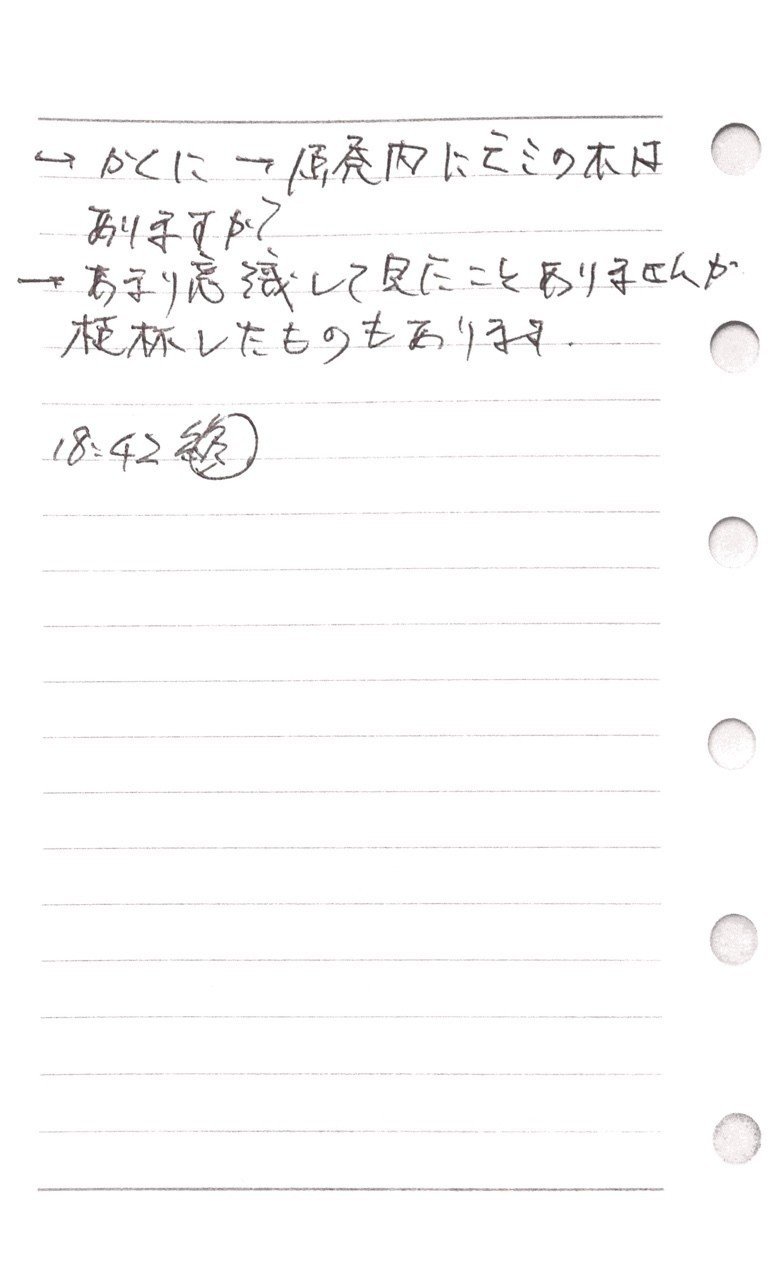 → かくに → 原発内にモミの木は
ありますか?
→ あまり意識して見たことありませんが
植林したものもあります.
18:42 終